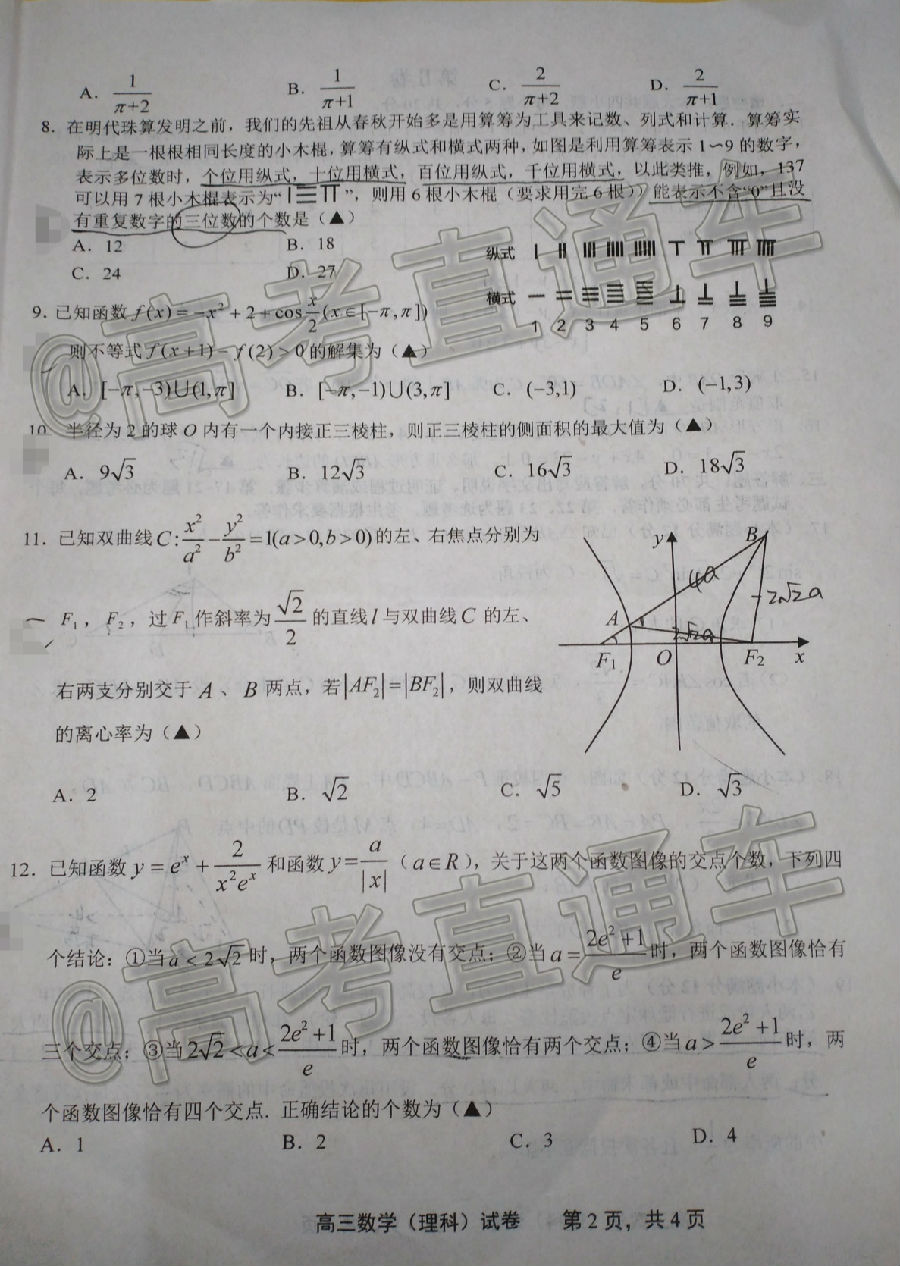 A. $\frac{1}{\pi+2}$ B. $\frac{1}{\pi+1}$ C. $\frac{2}{\pi+2}$ D. $\frac{2}{\pi+1}$
8. 在明代珠算发明之前，我们的先祖从春秋开始多是用算筹为工具来记数、列式和计算. 算筹实
际上是一根根相同长度的小木棍，算筹有纵式和横式两种，如图是利用算筹表示 1~9 的数字，
表示多位数时，个位用纵式，十位用横式，百位用纵式，千位用横式，以此类推，例如，137
可以用 7 根小木棍表示为“𝍩𝍢𝍯”，则用 6 根小木棍（要求用完 6 根）能表示不含“0”且没
有重复数字的三位数的个数是（▲）
A. 12 B. 18
C. 24 D. 27
纵式
横式
1 2 3 4 5 6 7 8 9
9. 已知函数 $f(x)=-x^2+2+\cos\frac{x}{2}(x\in[-\pi,\pi])$
则不等式 $f(x+1)-f(2)>0$ 的解集为（▲）
A. $[-\pi,-3)\cup(1,\pi]$ B. $[-\pi,-1)\cup(3,\pi]$ C. $(-3,1)$ D. $(-1,3)$
10. 半径为 2 的球 O 内有一个内接正三棱柱，则正三棱柱的侧面积的最大值为（▲）
A. $9\sqrt{3}$ B. $12\sqrt{3}$ C. $16\sqrt{3}$ D. $18\sqrt{3}$
11. 已知双曲线 $C:\frac{x^2}{a^2}-\frac{y^2}{b^2}=1(a>0,b>0)$ 的左、右焦点分别为
$F_1$，$F_2$，过 $F_1$ 作斜率为 $\frac{\sqrt{2}}{2}$ 的直线 $l$ 与双曲线 $C$ 的左、
右两支分别交于 $A$、$B$ 两点，若 $|AF_2|=|BF_2|$，则双曲线
的离心率为（▲）
y B
4a
2√2a
A 2√2a
F₁ O F₂ x
A. 2 B. $\sqrt{2}$ C. $\sqrt{5}$ D. $\sqrt{3}$
12. 已知函数 $y=e^x+\frac{2}{x^2e^x}$ 和函数 $y=\frac{a}{|x|}$（$a\in R$），关于这两个函数图像的交点个数，下列四
个结论：①当 $a<2\sqrt{2}$ 时，两个函数图像没有交点；②当 $a=\frac{2e^2+1}{e}$ 时，两个函数图像恰有
三个交点；③当 $2\sqrt{2}<a<\frac{2e^2+1}{e}$ 时，两个函数图像恰有两个交点；④当 $a>\frac{2e^2+1}{e}$ 时，两
个函数图像恰有四个交点. 正确结论的个数为（▲）
A. 1 B. 2 C. 3 D. 4
高三数学（理科）试卷 第 2 页，共 4 页
@高考直通车
@高考直通车